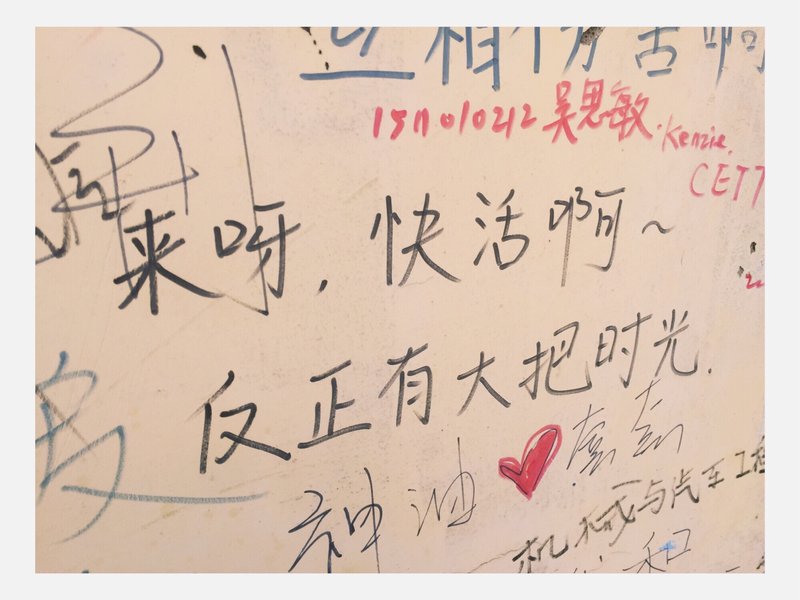 1511010212 吴思敏.
Kenzie.
CET7
来呀,快活啊~
反正有大把时光.
神油
机械与汽车工程
和